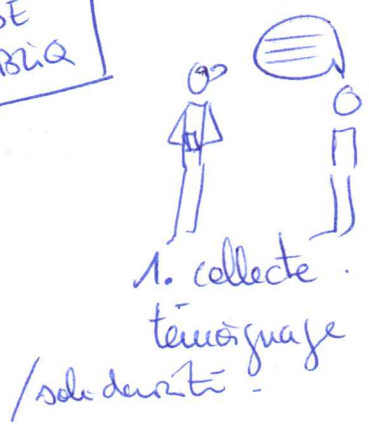 1. collecte.
témoignage
/solidarité.